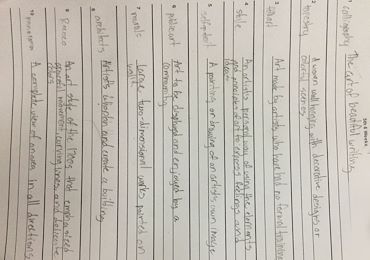 1 calligraphy The art of beautiful writing
2 tapestry A woven wall hanging with decorative designs or
colorful scenes
3 Art made by artists who have had no formal training
4 style An artist's personal way of using the elements
and principles of art to express feelings and
5 A painting or drawing of an artist's own image
6 public art Art to be displayed and enjoyed by a
community
7 murals Large two-dimensional works painted on
walls
8 architects Artists who plan and create a building
9 Rococo An art style of the 1700s that emphasized
graceful movement, curving lines, and delicate
colors
10 A complete view of an area in all directions